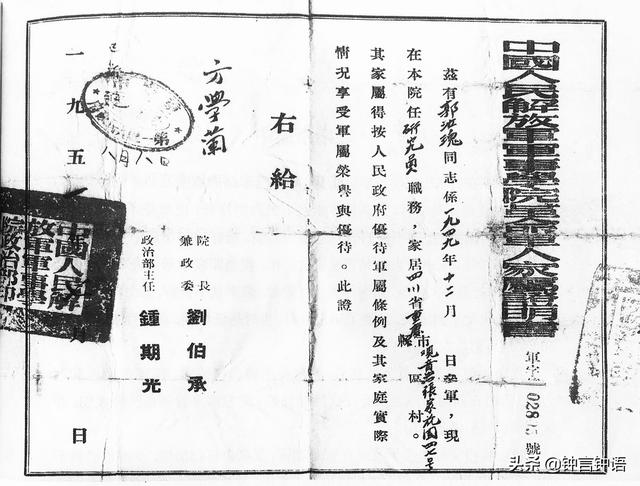 中國人民解放軍軍事學院革命軍人家屬證明書
軍字 028 號
茲有郭汝瑰同志係一九四九年十二月 日參軍，現
在本院任研究員職務，家居四川省重慶市縣 區 村。
其家屬得按人民政府優待軍屬條例及其家庭實際
情況享受軍屬榮譽與優待。此證
右給
方學蘭
院長
兼政委 劉伯承
政治部主任 鍾期光
一九五 月 日
八月八日
中國人民解
放軍軍事學
院政治部印
头条 @钟言钟语